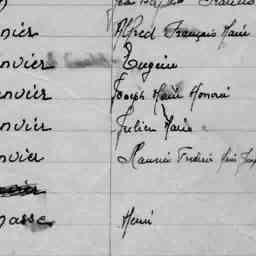 nier Alfred François Marie
nvier Eugène
nvier Joseph Marie Honoré
nvier Julien Marie
nvier Maurice Frédéric Marie
masse Henri